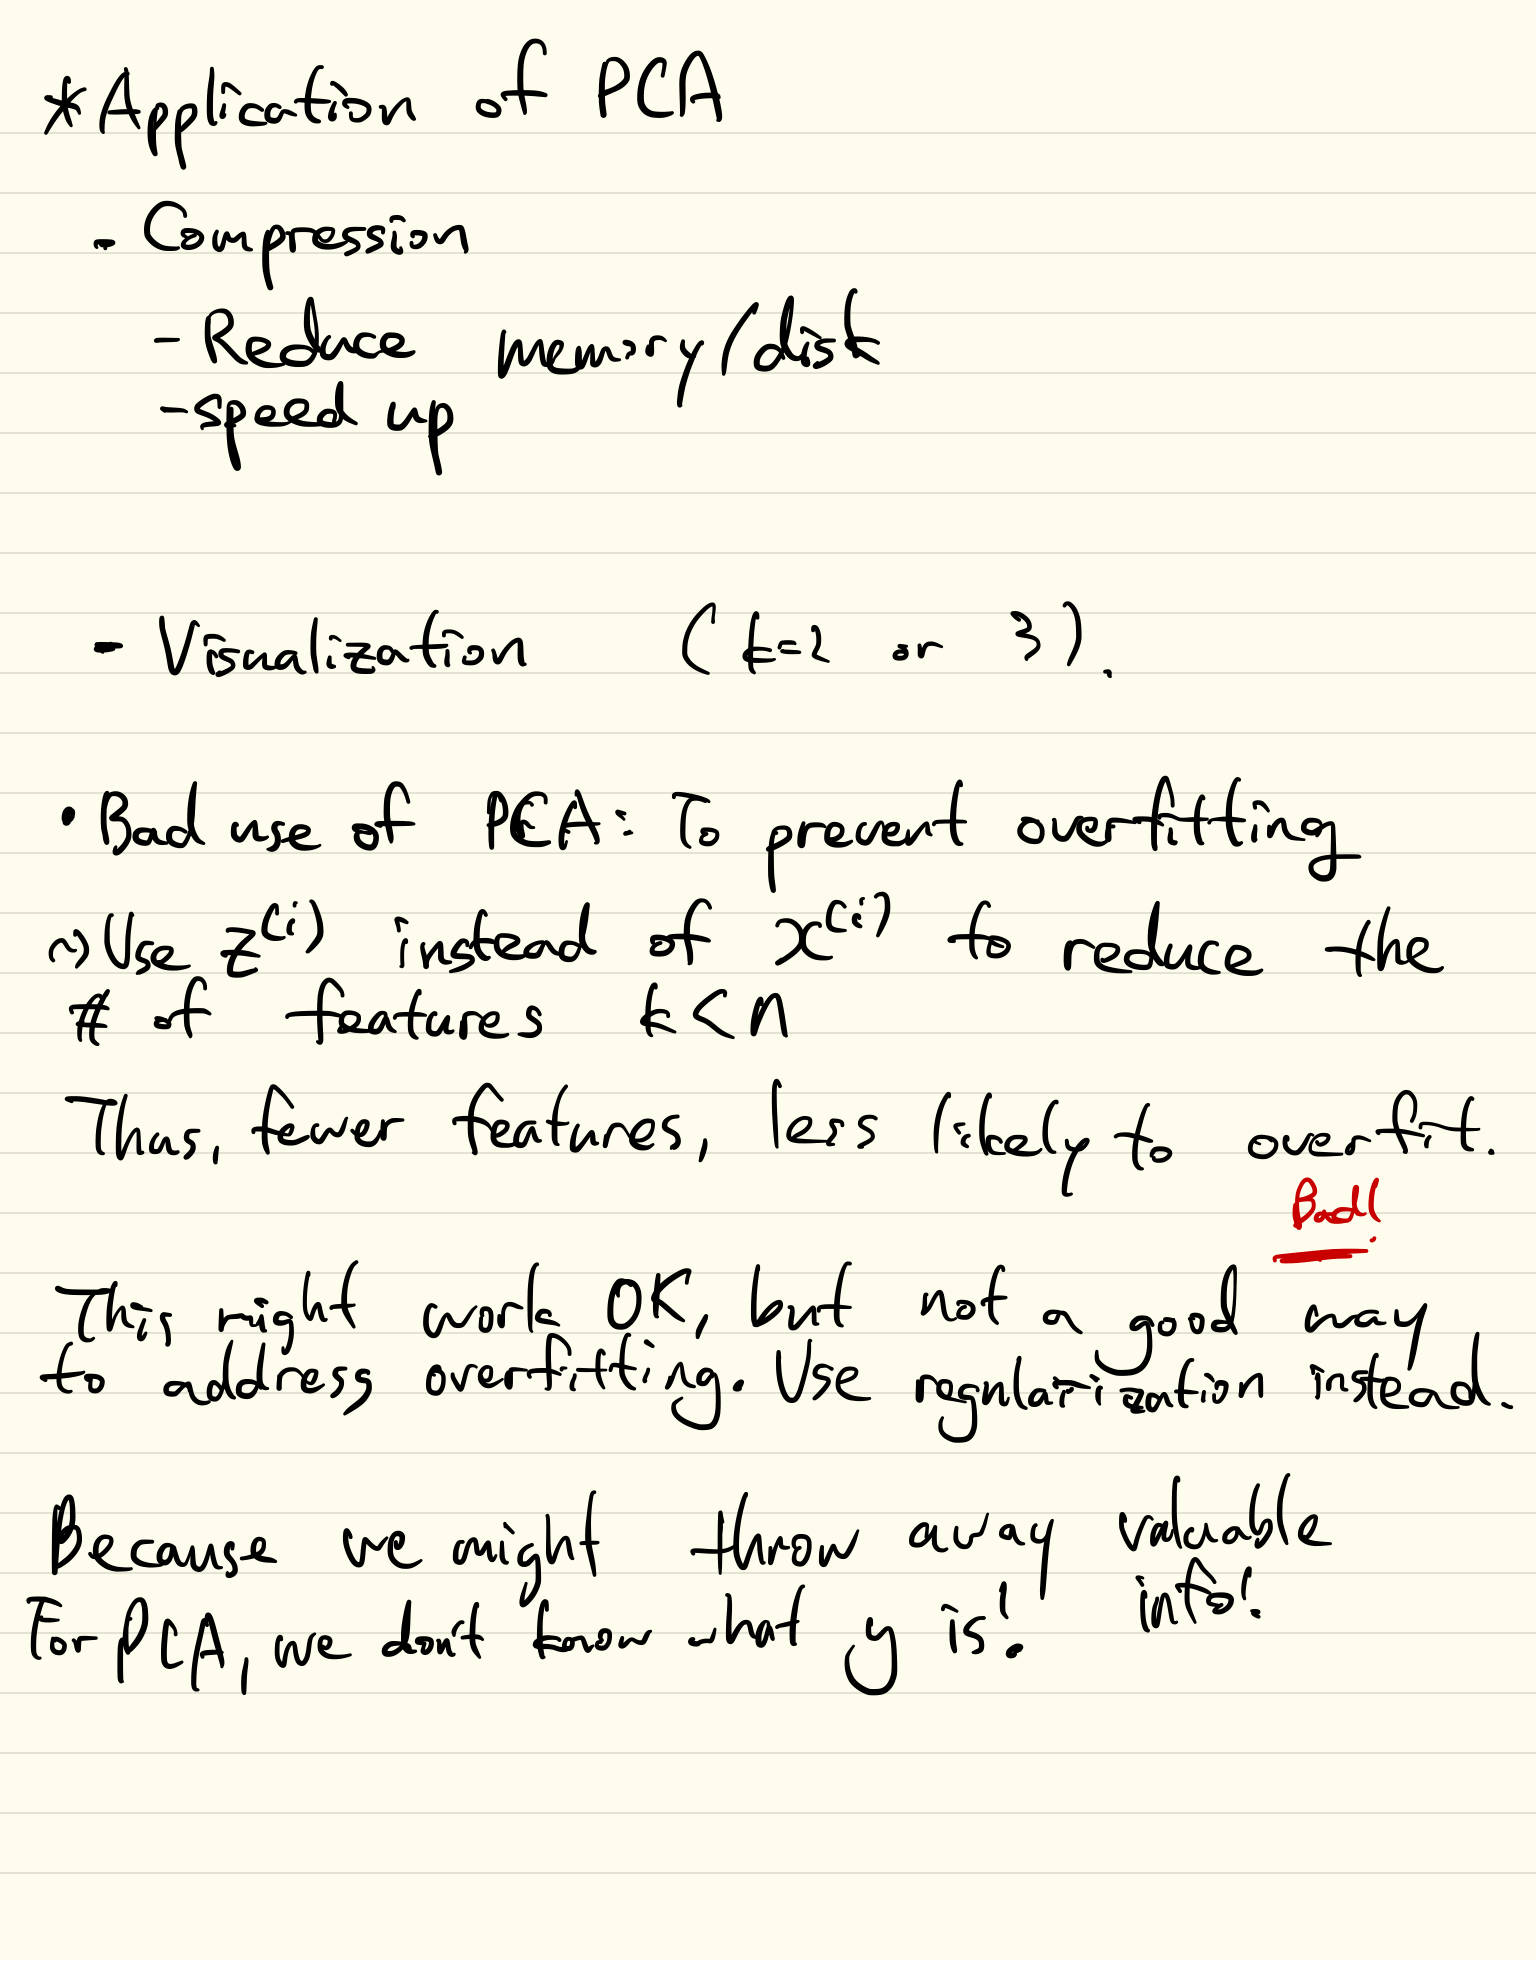 *Application of PCA
- Compression
- Reduce memory/disk
- speed up
- Visualization (k=2 or 3).
• Bad use of PCA: To prevent overfitting
~) Use z^(i) instead of x^(i) to reduce the
# of features k<n
Thus, fewer features, less likely to overfit.
Bad!
This might work OK, but not a good way
to address overfitting. Use regularization instead.
Because we might throw away valuable
info!
For PCA, we don't know what y is!